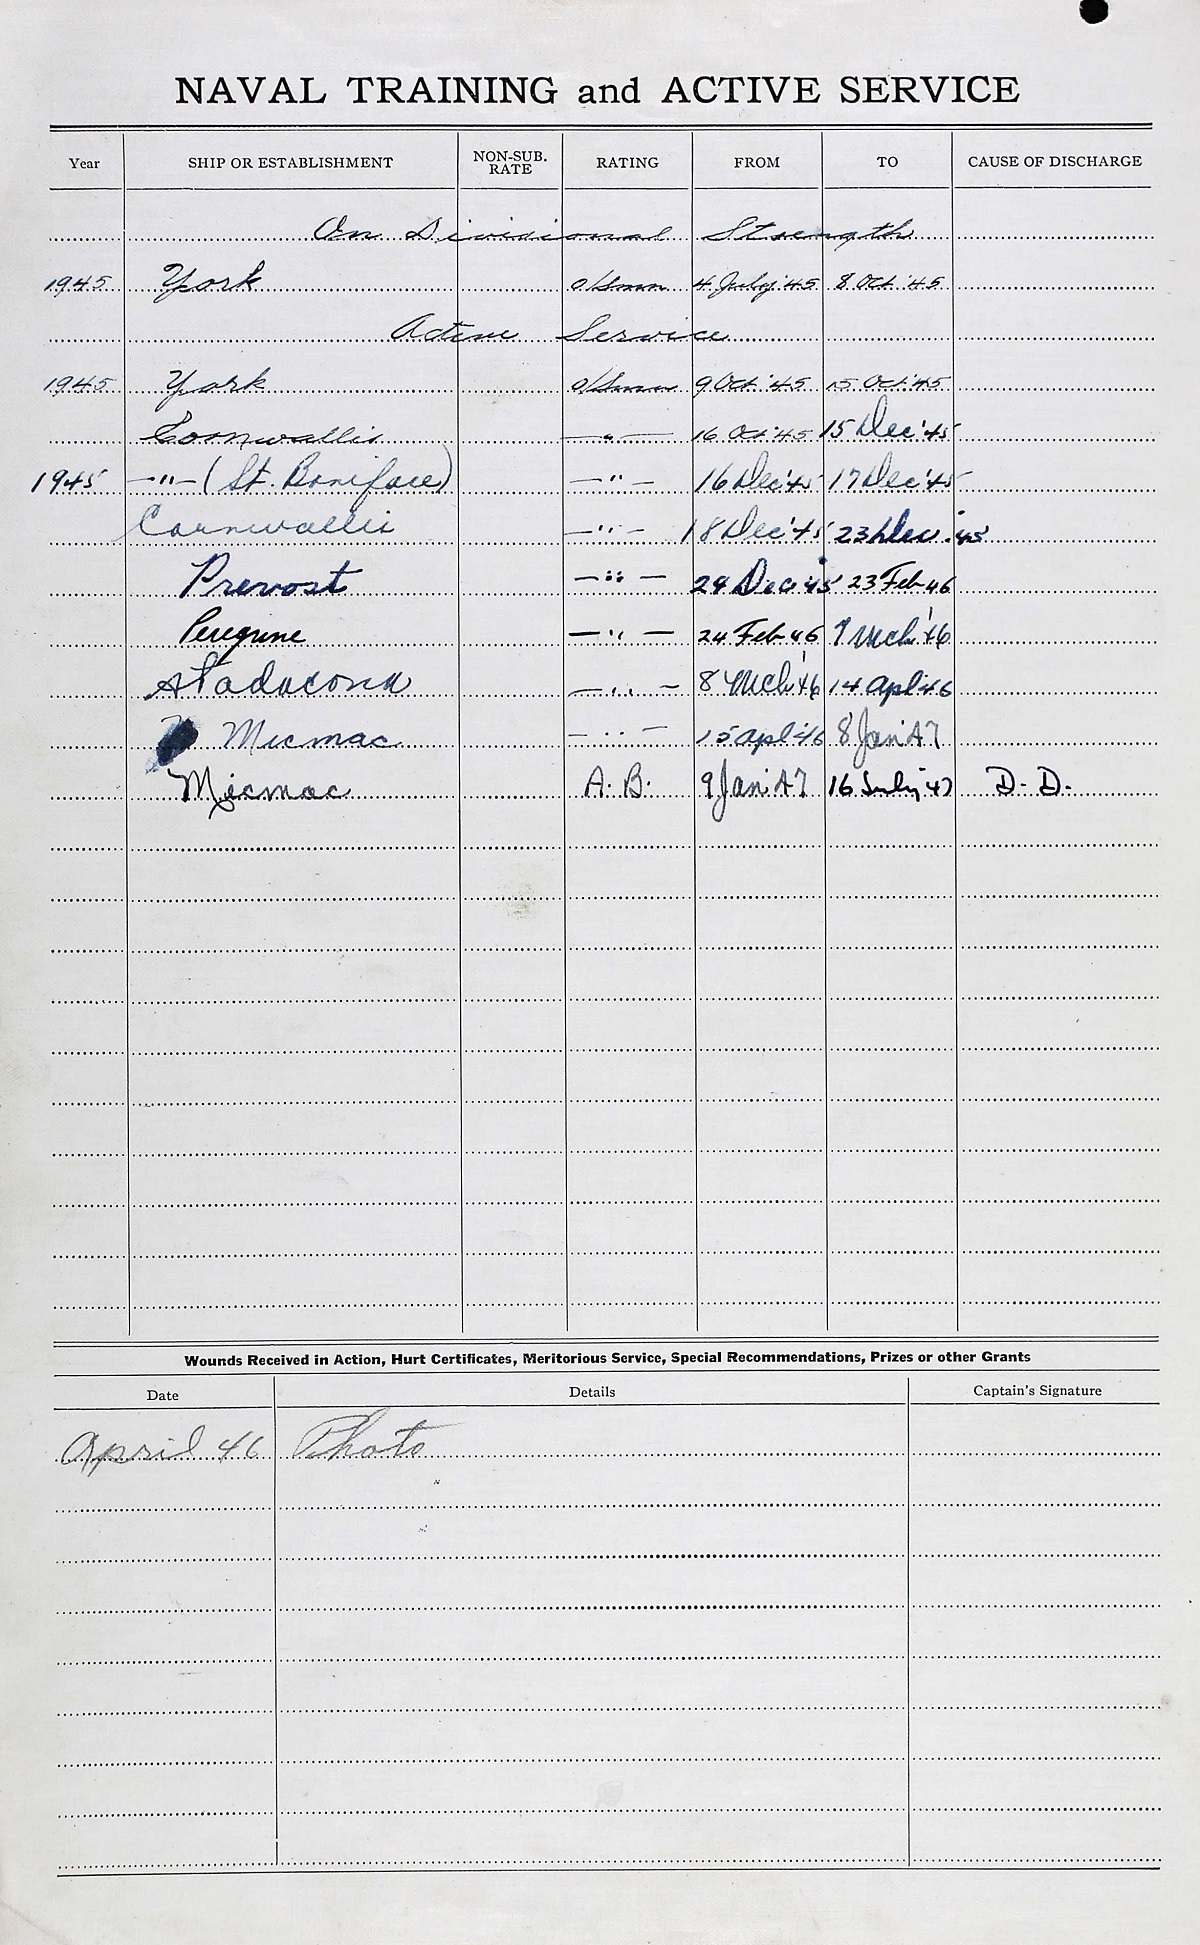 NAVAL TRAINING and ACTIVE SERVICE
Year SHIP OR ESTABLISHMENT NON-SUB. RATE RATING FROM TO CAUSE OF DISCHARGE
On Divisional Strength
1945 York O/Smn 4 July '45 8 Oct '45
Active Service
1945 York O/Smn 9 Oct '45 15 Oct '45
Cornwallis —"— 16 Oct '45 15 Dec '45
1945 —"— (St. Boniface) —"— 16 Dec '45 17 Dec '45
Cornwallis —"— 18 Dec '45 23 Dec. 45
Prevost —"— 24 Dec 45 23 Feb 46
Peregrine —"— 24 Feb 46 7 Mch '46
Stadacona —"— 8 Mch '46 14 Apl 46
Micmac —"— 15 Apl '46 8 Jan '47
Micmac A.B. 9 Jan '47 16 July '47 D.D.
Wounds Received in Action, Hurt Certificates, Meritorious Service, Special Recommendations, Prizes or other Grants
Date Details Captain's Signature
April 46 Photo